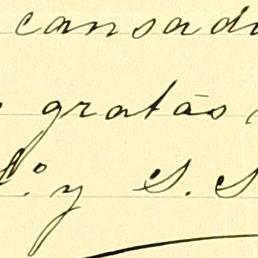 cansad
gratas
y S. S